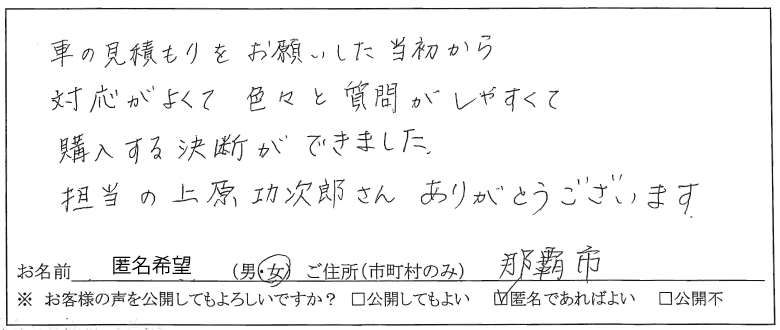 車の見積もりをお願いした当初から
対応がよくて 色々と質問がしやすくて
購入する決断ができました。
担当の上原功次郎さん ありがとうございます
お名前 匿名希望 (男・女) ご住所(市町村のみ) 那覇市
※ お客様の声を公開してもよろしいですか? □公開してもよい ☑匿名であればよい □公開不